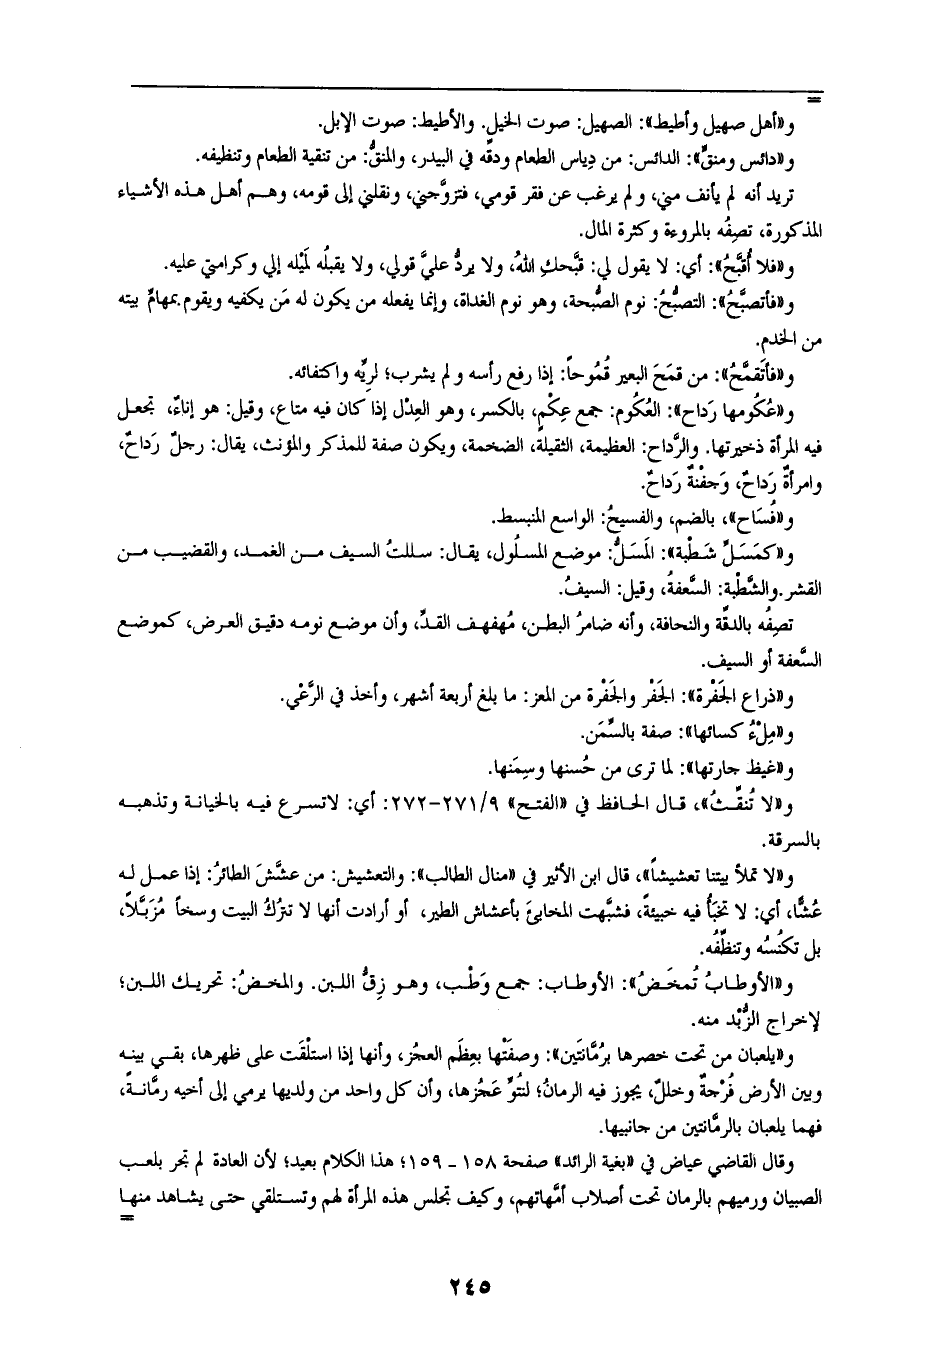 =
و«أهل صهيل وأطيط»: الصهيل: صوت الخيل. والأطيط: صوت الإبل.
و«دائس ومنقٍّ»: الدائس: من دِياس الطعام ودقِّه في البيدر، والمنقُّ: من تنقية الطعام وتنظيفه.
تريد أنه لم يأنف مني، و لم يرغب عن فقر قومي، فتزوَّجني، ونقلني إلى قومه، وهـم أهـل هـذه الأشـياء
المذكورة، تصِفُه بالمروءة وكثرة المال.
و«فلا أُقبَّحُ»: أي: لا يقول لي: قبَّحكِ اللهُ، ولا يردُّ عليَّ قولي، ولا يقبلُه لَمَيْله إلي وكرامتي عليه.
و«فأتصبَّحُ»: التصبُّحُ: نوم الصُّبحة، وهو نوم الغداة، وإنما يفعله من يكون له مَن يكفيه ويقوم.بمهامِّ بيته
من الخدم.
و«فأتَقمَّحُ»: من قمَحَ البعير قُمُوحاً: إذا رفع رأسه و لم يشرب؛ لرِيِّه واكتفائه.
و«عُكُومها رَداح»: العُكُوم: جمع عِكْمٍ، بالكسر، وهو العِدْل إذا كان فيه متاع، وقيل: هو إناءٌ، تجعـل
فيه المرأة ذخيرتها. والرَّداح: العظيمة، الثقيلة، الضخمة، ويكون صفة للمذكر والمؤنث، يقال: رجلٌ رَداحٌ،
وامرأةٌ رَداحٌ، وَجفْنةٌ رَداحٌ.
و«فُسَاح»، بالضم، والفسيحُ: الواسع المنبسط.
و«كمَسَلِّ شَطْبة»: المَسَلُّ: موضع المسلُول، يقـال: سـللتُ السيف مـن الغمـد، والقضيـب مـن
القشر.والشَّطْبة: السَّعفةُ، وقيل: السيفُ.
تصِفُه بالدقَّة والنحافة، وأنه ضامرُ البطـن، مُهفهـف القـدِّ، وأن موضـع نومـه دقيـق العـرض، كموضـع
السَّعفة أو السيف.
و«ذراع الجَفْرة»: الجَفْر والجَفْرة من المعز: ما بلغ أربعة أشهر، وأخذ في الرَّعْي.
و«مِلْءُ كسائها»: صفة بالسِّمَن.
و«غيظ جارتها»: لما ترى من حُسنها وسِمَنها.
و«لا تُنقِّـثُ»، قـال الحـافظ في «الفتـح» ٢٧١/٩-٢٧٢: أي: لاتسرع فيـه بالخيانـة وتذهبـه
بالسرقة.
و«لا تملأ بيتنا تعشيشاً»، قال ابن الأثير في «منال الطالب»: والتعشيش: من عشَّشَ الطائرُ: إذا عمـل لـه
عُشًّا، أي: لا تخبَأُ فيه خبيئةً، فشبَّهت المخابئَ بأعشاش الطير، أو أرادت أنها لا تترُكُ البيت وسخاً مُزَبَّلاً،
بل تكنُسُه وتنظِّفُه.
و«الأوطـابُ تُمخَـضُ»: الأوطـاب: جمـع وَطْـب، وهـو زِقُّ اللبـن. والمخـضُ: تحريـك اللبـن؛
لإخراج الزُّبْد منه.
و«يلعبان من تحت خصرها برُمَّانَتَين»: وصفَتْها بعِظَم العجُز، وأنها إذا استلْقَت على ظهرها، بقـي بينـه
وبين الأرض فُرْجةٌ وخللٌ، يجوز فيه الرمانُ؛ لنتُوِّ عَجُزها، وأن كل واحد من ولديها يرمي إلى أخيه رمَّانـةً،
فهما يلعبان بالرمَّانتين من جانبيها.
وقال القاضي عياض في «بغية الرائد» صفحة ١٥٨ - ١٥٩؛ هذا الكلام بعيد؛ لأن العادة لم تجر بلعـب
الصبيان ورميهم بالرمان تحت أصلاب أمَّهاتهم، وكيف تجلس هذه المرأة لهم وتسـتلقي حتـى يشـاهد منهـا
=
٢٤٥